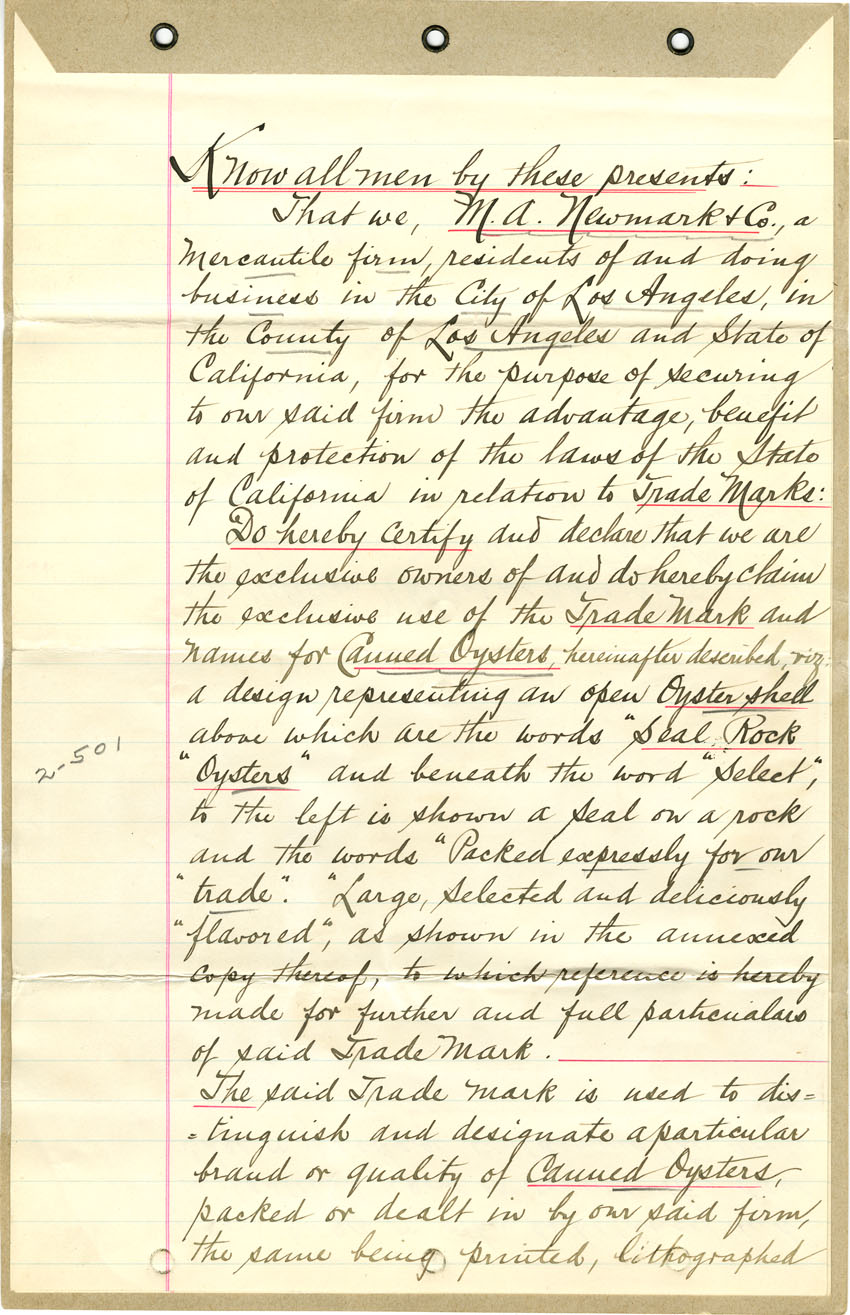 Know all men by these presents:
That we, M. A. Newmark & Co., a
Mercantile firm, residents of and doing
business in the City of Los Angeles, in
the County of Los Angeles and State of
California, for the purpose of securing
to our said firm the advantage, benefit
and protection of the laws of the State
of California in relation to Trade Marks:
Do hereby certify and declare that we are
the exclusive owners of and do hereby claim
the exclusive use of the Trade Mark and
names for Canned Oysters, hereinafter described, viz:
a design representing an open Oyster shell
above which are the words "Seal Rock
"Oysters" and beneath the word "Select",
2-501
to the left is shown a seal on a rock
and the words "Packed expressly for our
"trade". "Large, selected and deliciously
"flavored", as shown in the annexed
copy thereof, to which reference is hereby
made for further and full particualars
of said Trade Mark.
The said Trade Mark is used to dis=
=tinguish and designate a particular
brand or quality of Canned Oysters,
packed or dealt in by our said firm,
the same being printed, lithographed